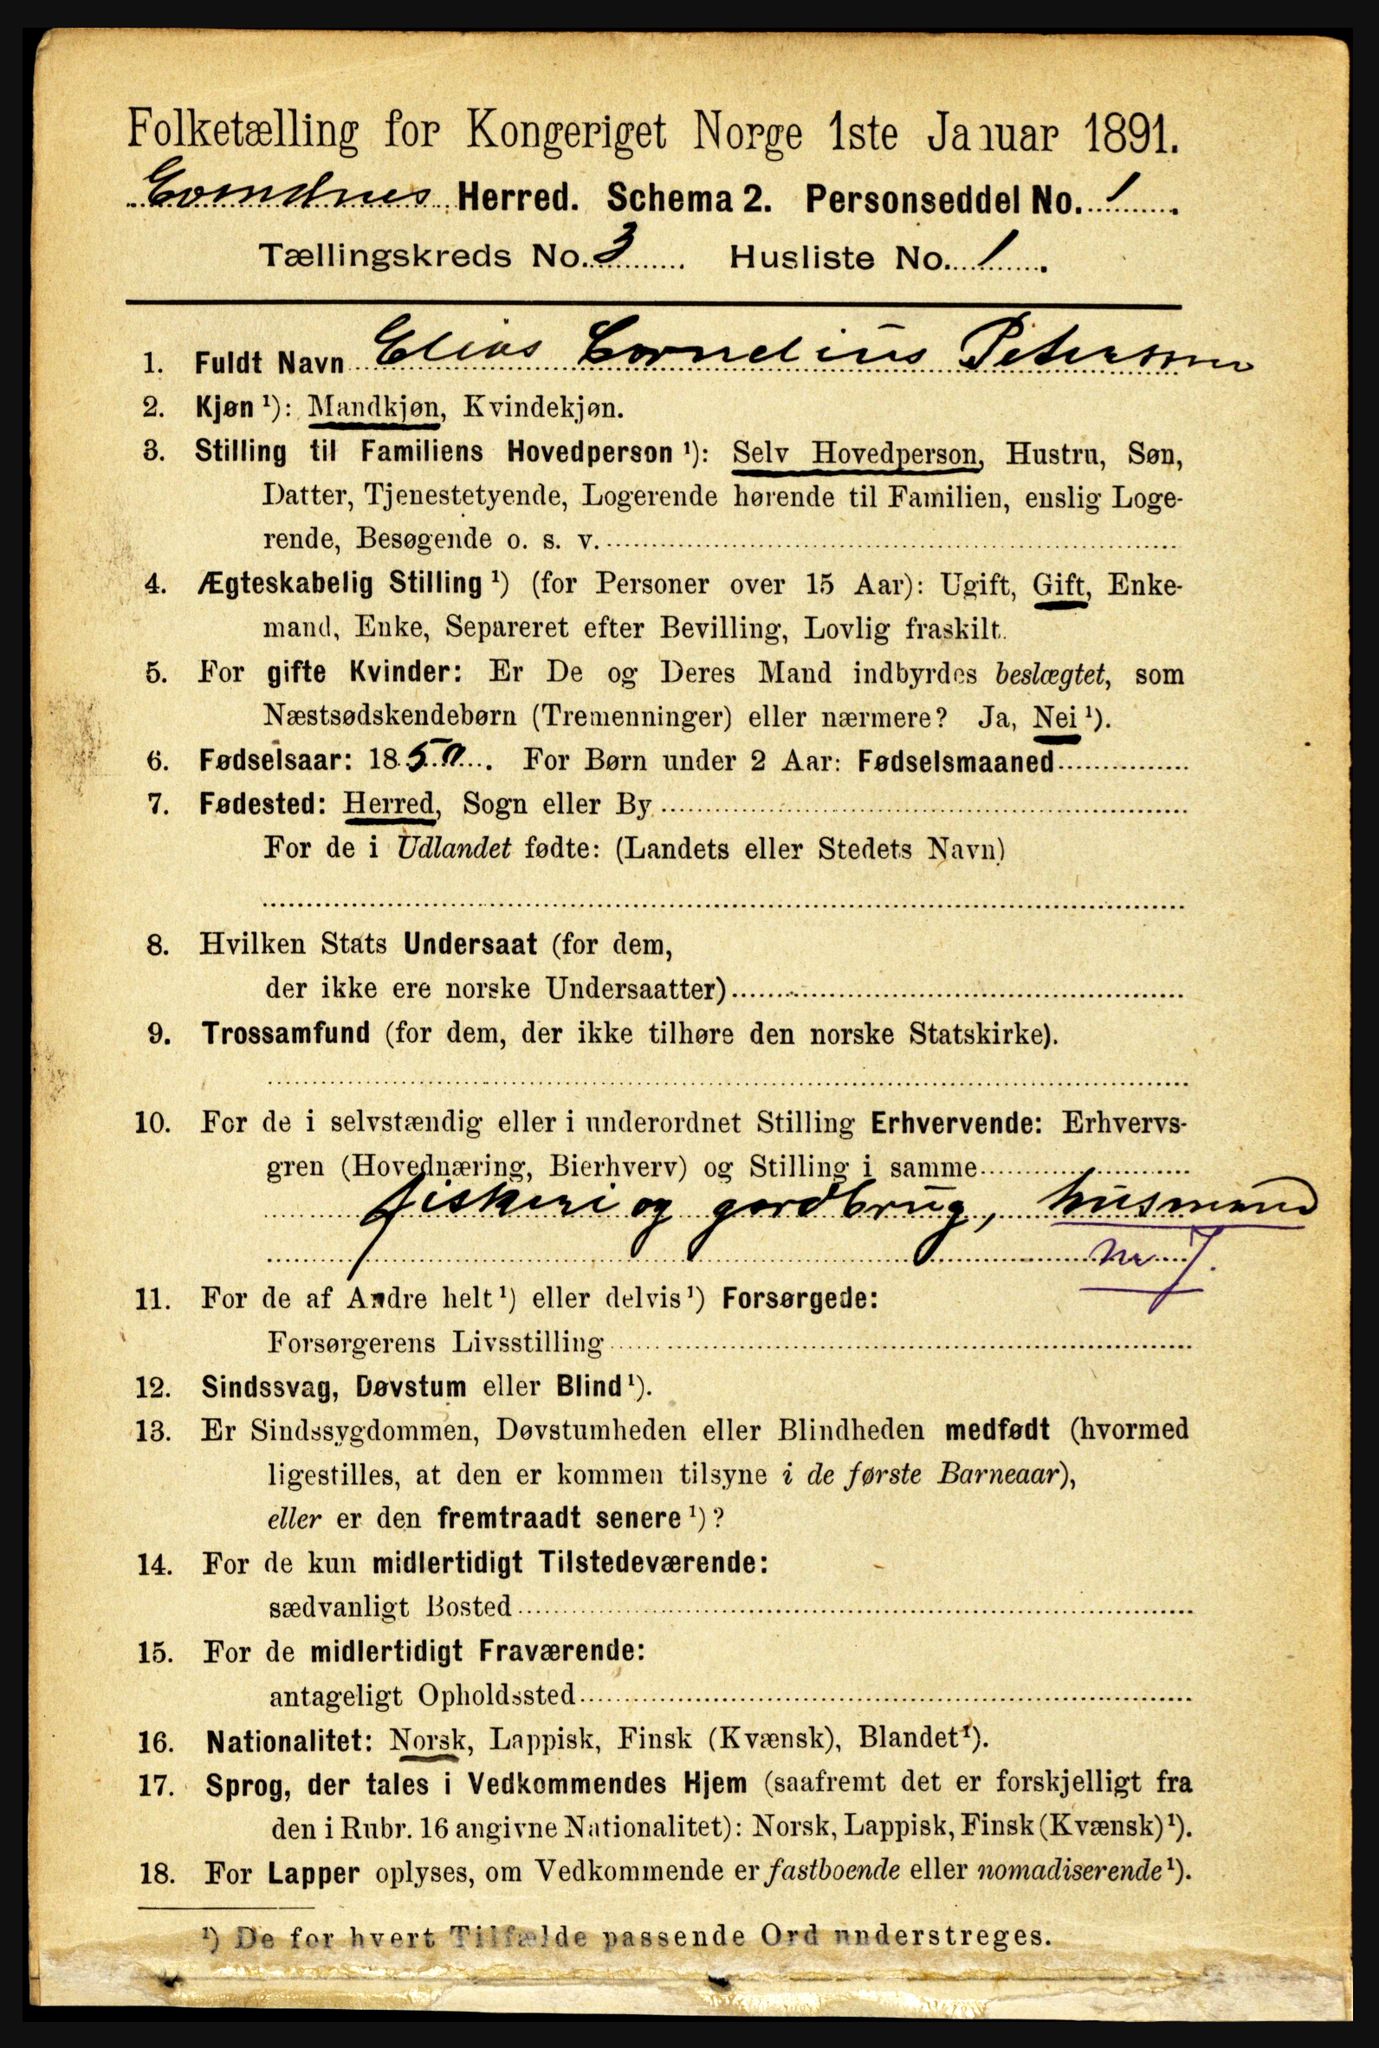 Folketælling for Kongeriget Norge 1ste Januar 1891.
Evindnes Herred. Schema 2. Personseddel No. 1.
Tællingskreds No. 3. Husliste No. 1.
1. Fuldt Navn Elias Cornelius Petersen
2. Kjøn ¹): Mandkjøn, Kvindekjøn.
3. Stilling til Familiens Hovedperson ¹): Selv Hovedperson, Hustru, Søn,
Datter, Tjenestetyende, Logerende hørende til Familien, enslig Loge-
rende, Besøgende o. s. v.
4. Ægteskabelig Stilling ¹) (for Personer over 15 Aar): Ugift, Gift, Enke-
mand, Enke, Separeret efter Bevilling, Lovlig fraskilt.
5. For gifte Kvinder: Er De og Deres Mand indbyrdes beslægtet, som
Næstsødskendebørn (Tremenninger) eller nærmere? Ja, Nei ¹).
6. Fødselsaar: 1850. For Børn under 2 Aar: Fødselsmaaned
7. Fødested: Herred, Sogn eller By
For de i Udlandet fødte: (Landets eller Stedets Navn)
8. Hvilken Stats Undersaat (for dem,
der ikke ere norske Undersaatter)
9. Trossamfund (for dem, der ikke tilhøre den norske Statskirke).
10. For de i selvstændig eller i underordnet Stilling Erhvervende: Erhvervs-
gren (Hovednæring, Bierhverv) og Stilling i samme
fiskeri og gardbrug, husmand
m 7.
11. For de af Andre helt ¹) eller delvis ¹) Forsørgede:
Forsørgerens Livsstilling
12. Sindssvag, Døvstum eller Blind ¹).
13. Er Sindssygdommen, Døvstumheden eller Blindheden medfødt (hvormed
ligestilles, at den er kommen tilsyne i de første Barneaar),
eller er den fremtraadt senere ¹)?
14. For de kun midlertidigt Tilstedeværende:
sædvanligt Bosted
15. For de midlertidigt Fraværende:
antageligt Opholdssted
16. Nationalitet: Norsk, Lappisk, Finsk (Kvænsk), Blandet ¹).
17. Sprog, der tales i Vedkommendes Hjem (saafremt det er forskjelligt fra
den i Rubr. 16 angivne Nationalitet): Norsk, Lappisk, Finsk (Kvænsk) ¹).
18. For Lapper oplyses, om Vedkommende er fastboende eller nomadiserende ¹).
¹) De for hvert Tilfælde passende Ord understreges.